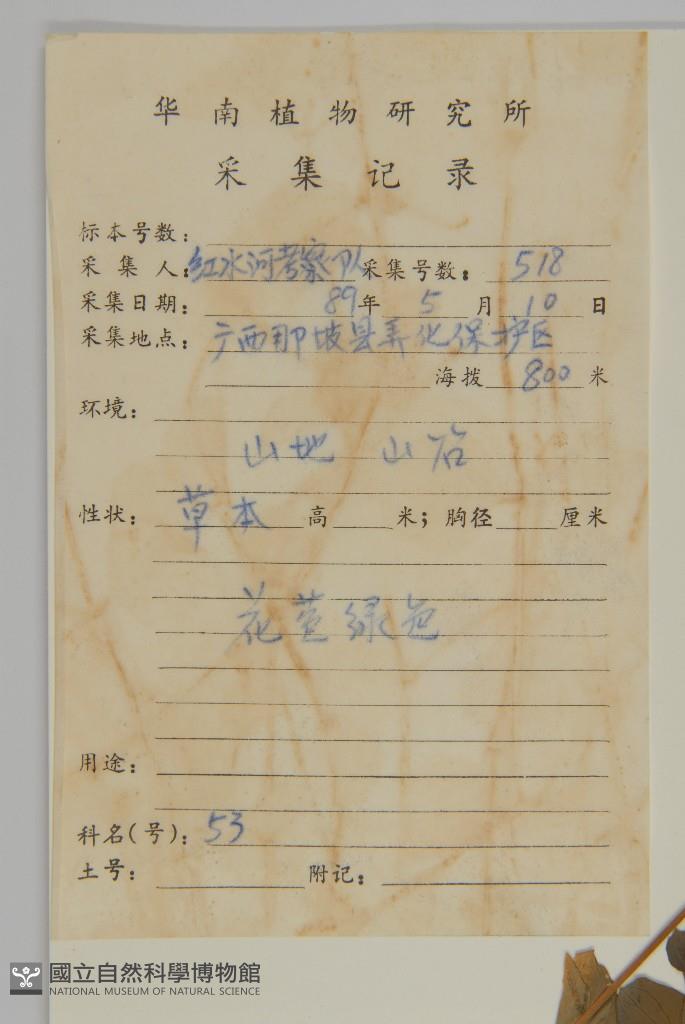 华南植物研究所
采集记录
标本号数:
采集人: 红水河考察队 采集号数: 518
采集日期: 89年 5月 10日
采集地点: 广西那坡县弄化保护区
海拨 800 米
环境:
山地 山谷
性状: 草本 高 米; 胸径 厘米
花萱绿色
用途:
科名(号): 53
土号: 附记:
國立自然科學博物館
NATIONAL MUSEUM OF NATURAL SCIENCE